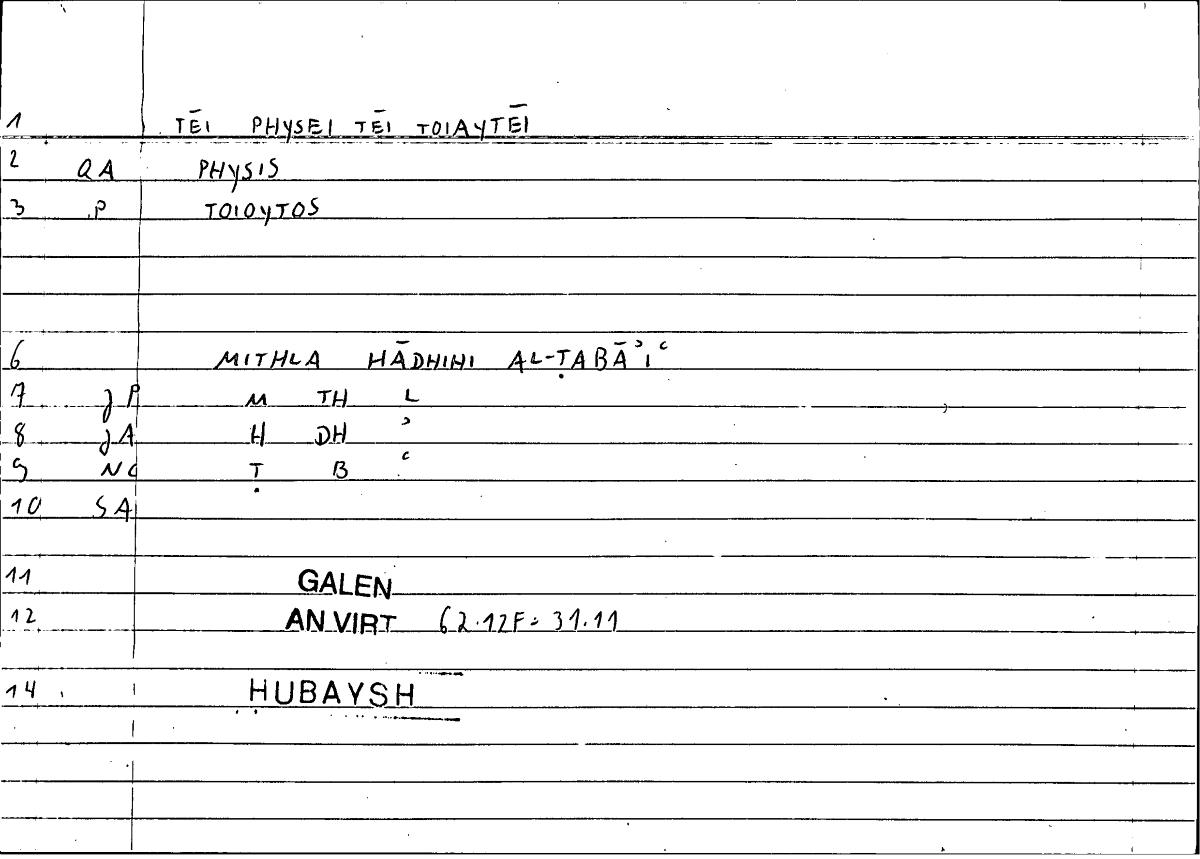 1 TĒI PHYSEI TĒI TOIAYTĒI
2 QA PHYSIS
3 P TOIOYTOS
6 MITHLA HĀDHIHI AL-ṬABĀʾIʿ
7 jP M TH L
8 jA H DH ʾ
9 NC Ṭ B ʿ
10 SA
11 GALEN
12 AN VIRT 62.12F = 31.11
14 ḤUBAYSH